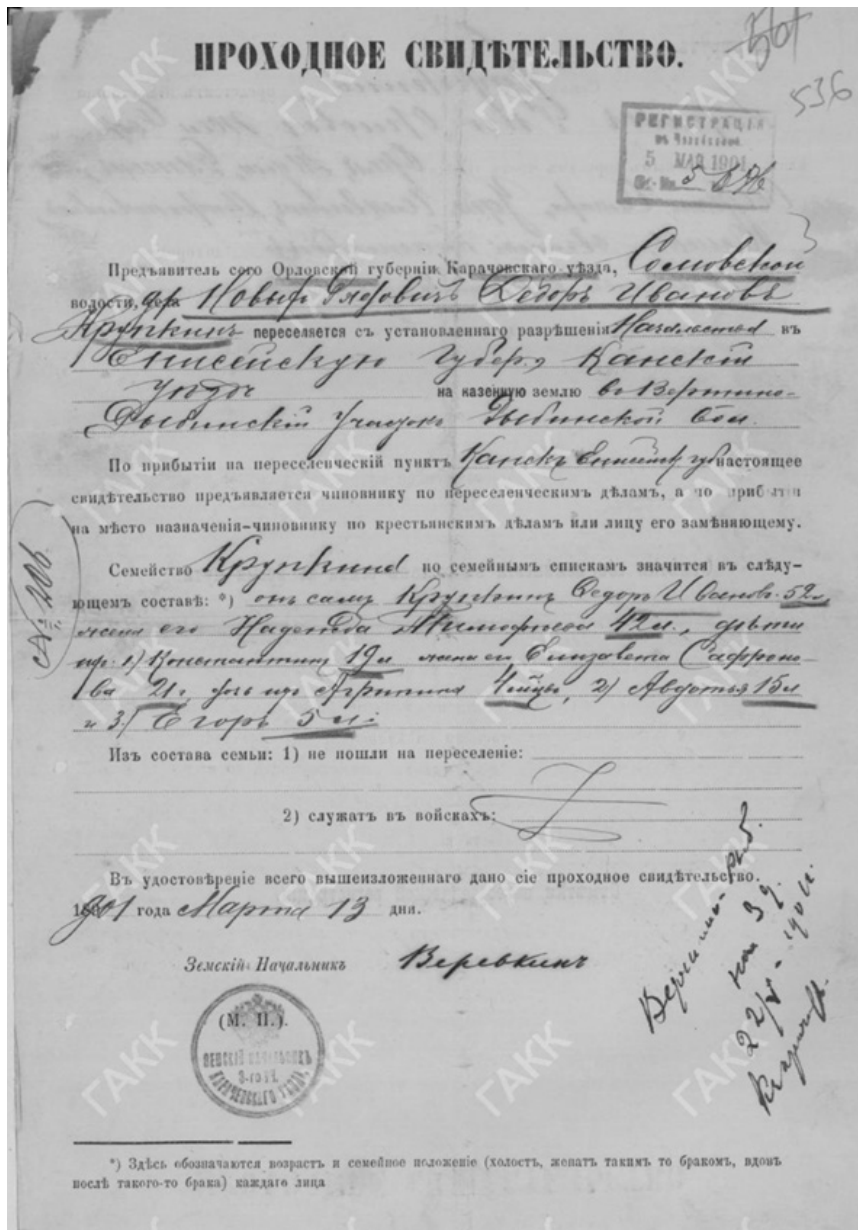 ПРОХОДНОЕ СВИДѢТЕЛЬСТВО.
536
РЕГИСТРАЦІЯ
въ Челябинскѣ
5 МАЙ 1901
Предъявитель сего Орловской губерніи Карачевскаго уѣзда, Сомовской
волости, дер. Новый Ѳедоръ Ивановъ
Крупкинъ переселяется съ установленнаго разрѣшенія Начальства въ
Енисейскую Губер. Канскій
уѣздъ на казенную землю въ Вершино-
Рыбинскій Участокъ Рыбинской вол.
По прибытіи на переселенческій пунктъ Канскъ Енисейск губ настоящее
свидѣтельство предъявляется чиновнику по переселенческимъ дѣламъ, а по прибытіи
на мѣсто назначенія-чиновнику по крестьянскимъ дѣламъ или лицу его замѣняющему.
№ 206.
Семейство Крупкина по семейнымъ спискамъ значится въ слѣду-
ющемъ составѣ: *) онъ самъ Крупкинъ Ѳедоръ Иванов. 52 л.
жена его Надежда Тимофѣева 42 л., дѣти
их: 1) Константинъ 19 л жена его Елизавета Сафроно-
ва 21 г., дочь их Агрипина 4 мѣсц., 2) Авдотья 15 л
и 3) Егоръ 5 л.
Изъ состава семьи: 1) не пошли на переселеніе:
2) служатъ въ войскахъ:
Въ удостовѣреніе всего вышеизложеннаго дано сіе проходное свидѣтельство.
1901 года Марта 13 дня.
Земскій Начальникъ Веревкинъ
(М. П.).
ЗЕМСКІЙ НАЧАЛЬНИКЪ
КАРАЧЕВСКАГО УѢЗДА
Вершино-Рыб.
на 3 д.
22/V 1901 г.
*) Здѣсь обозначаются возрастъ и семейное положеніе (холостъ, женатъ такимъ то бракомъ, вдовъ
послѣ такого-то брака) каждаго лица
ГАКК